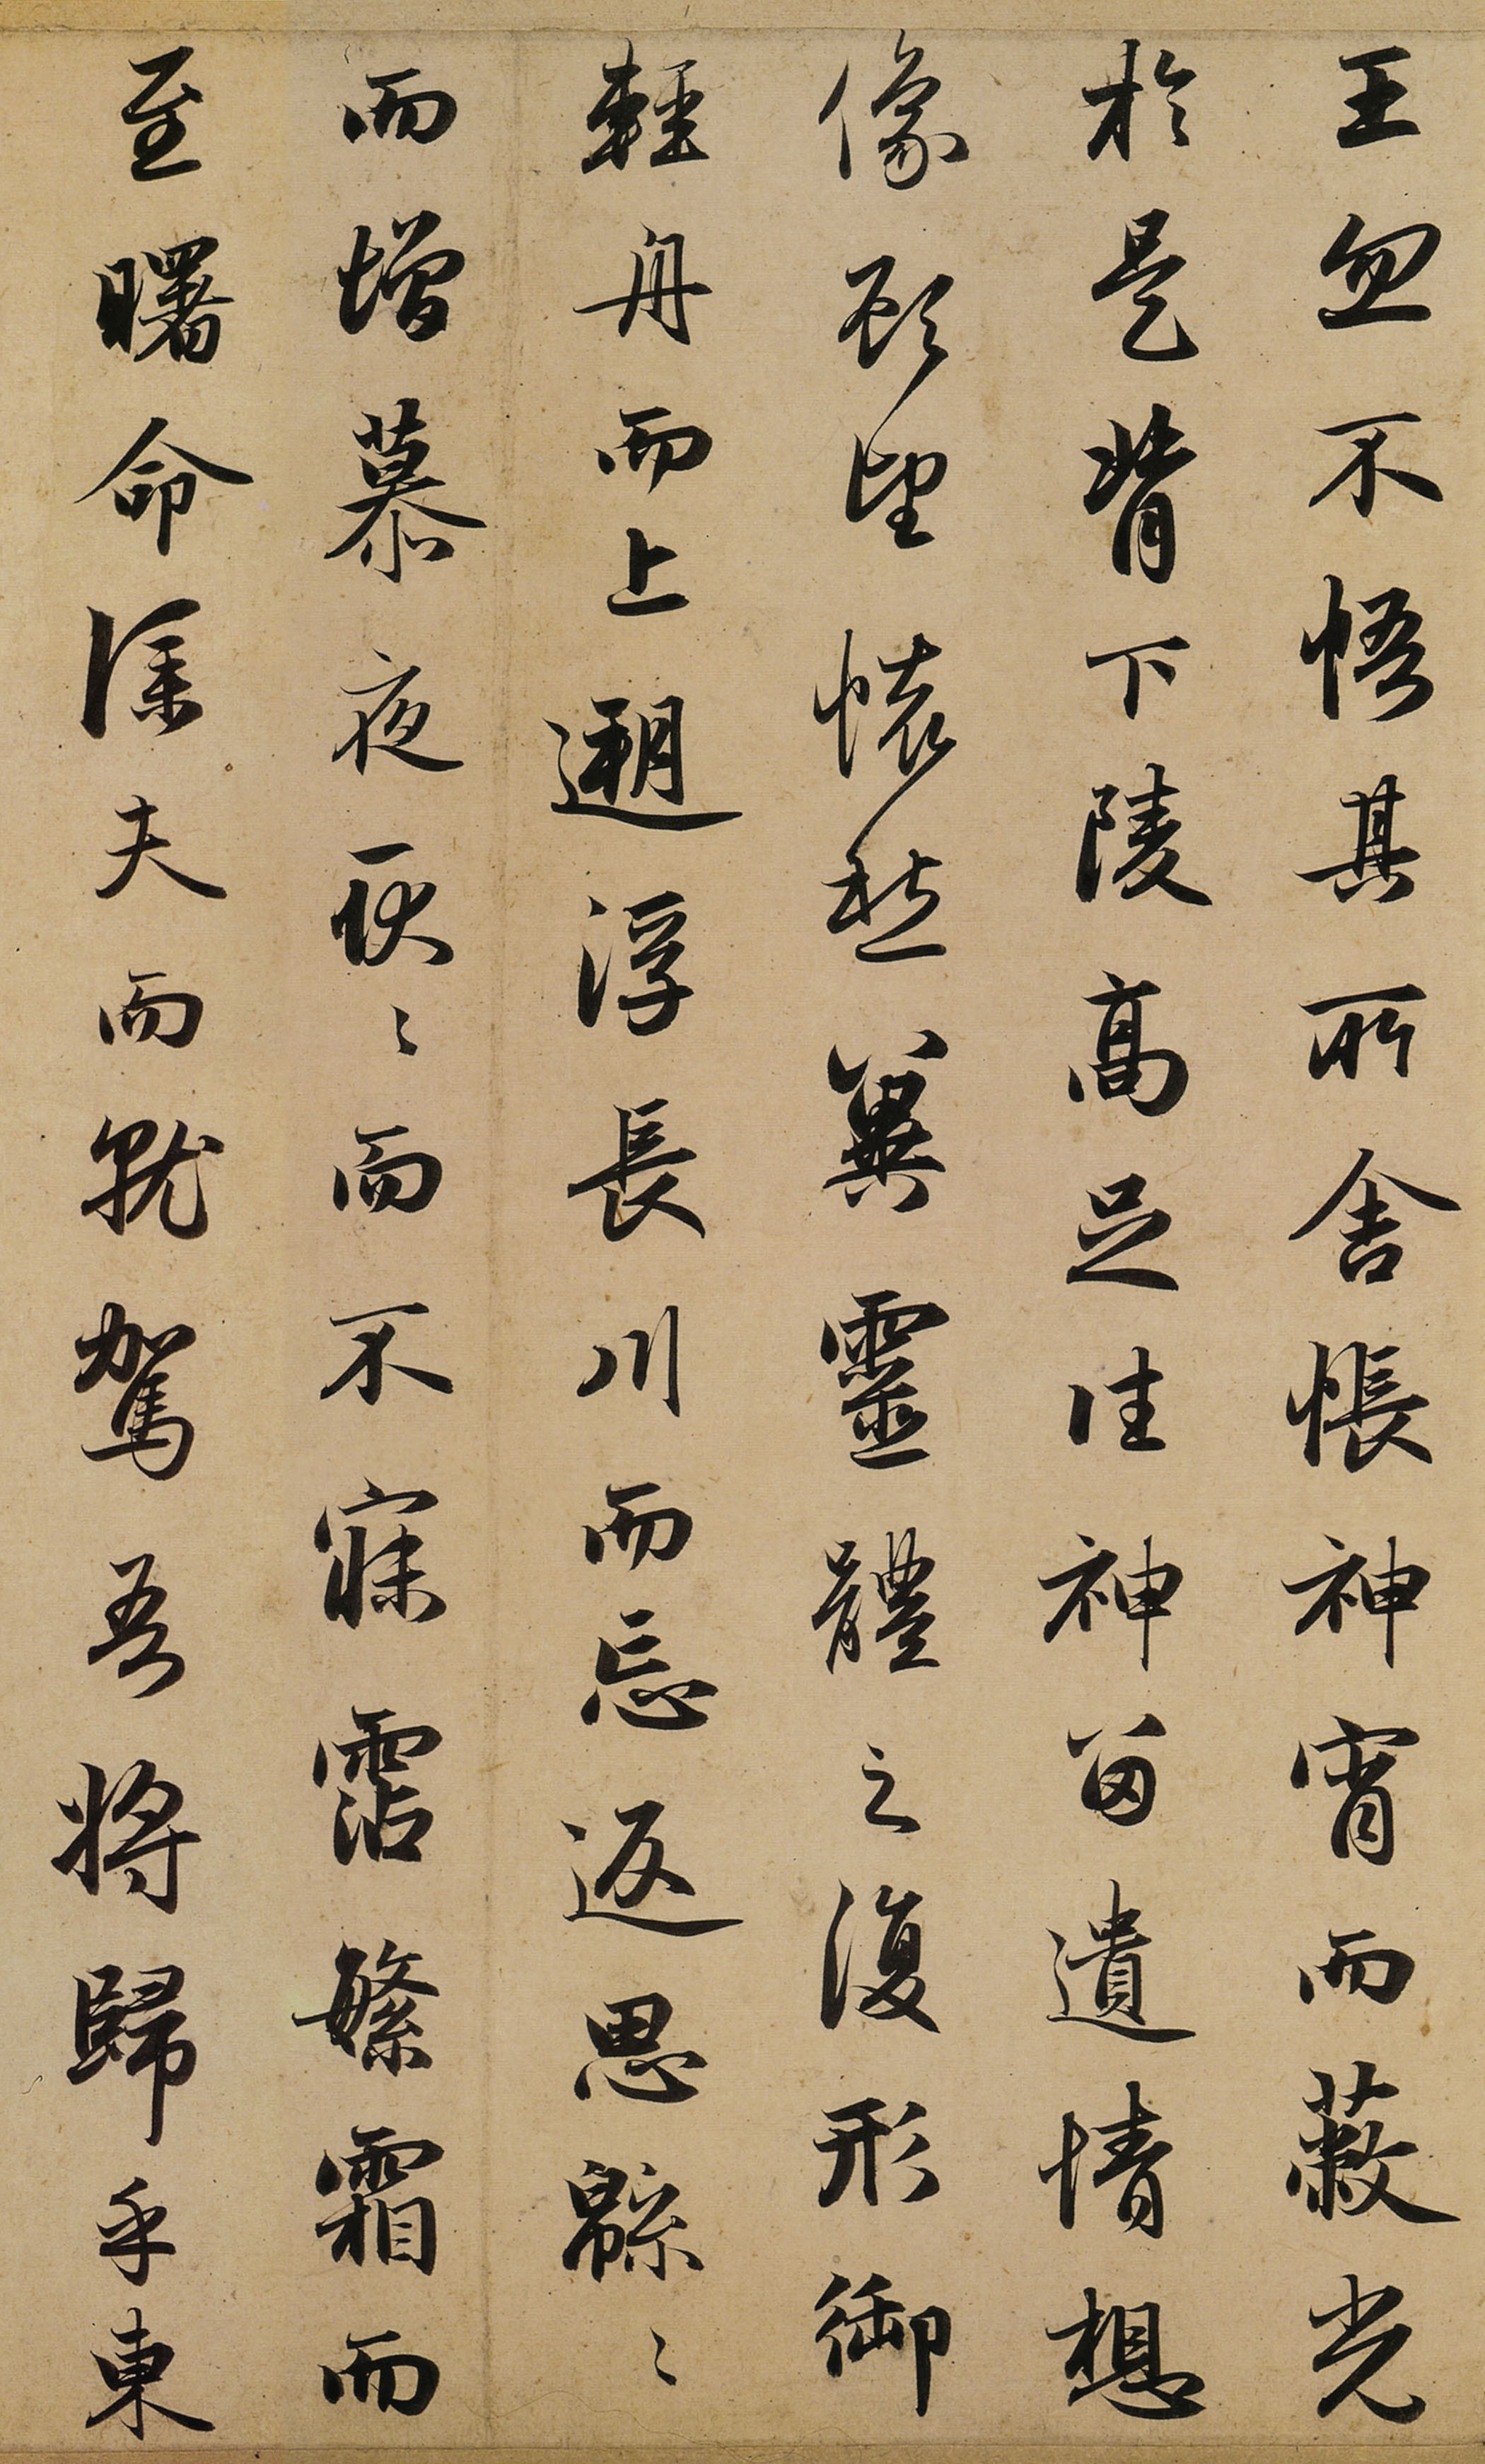 王忽不悟其所舍悵神宵而蔽光
於是背下陵高足往神留遺情想
像顧望懷愁冀靈體之復形御
輕舟而上遡浮長川而忘返思緜〻
而增慕夜耿〻而不寐霑繁霜而
至曙命僕夫而就駕吾將歸乎東